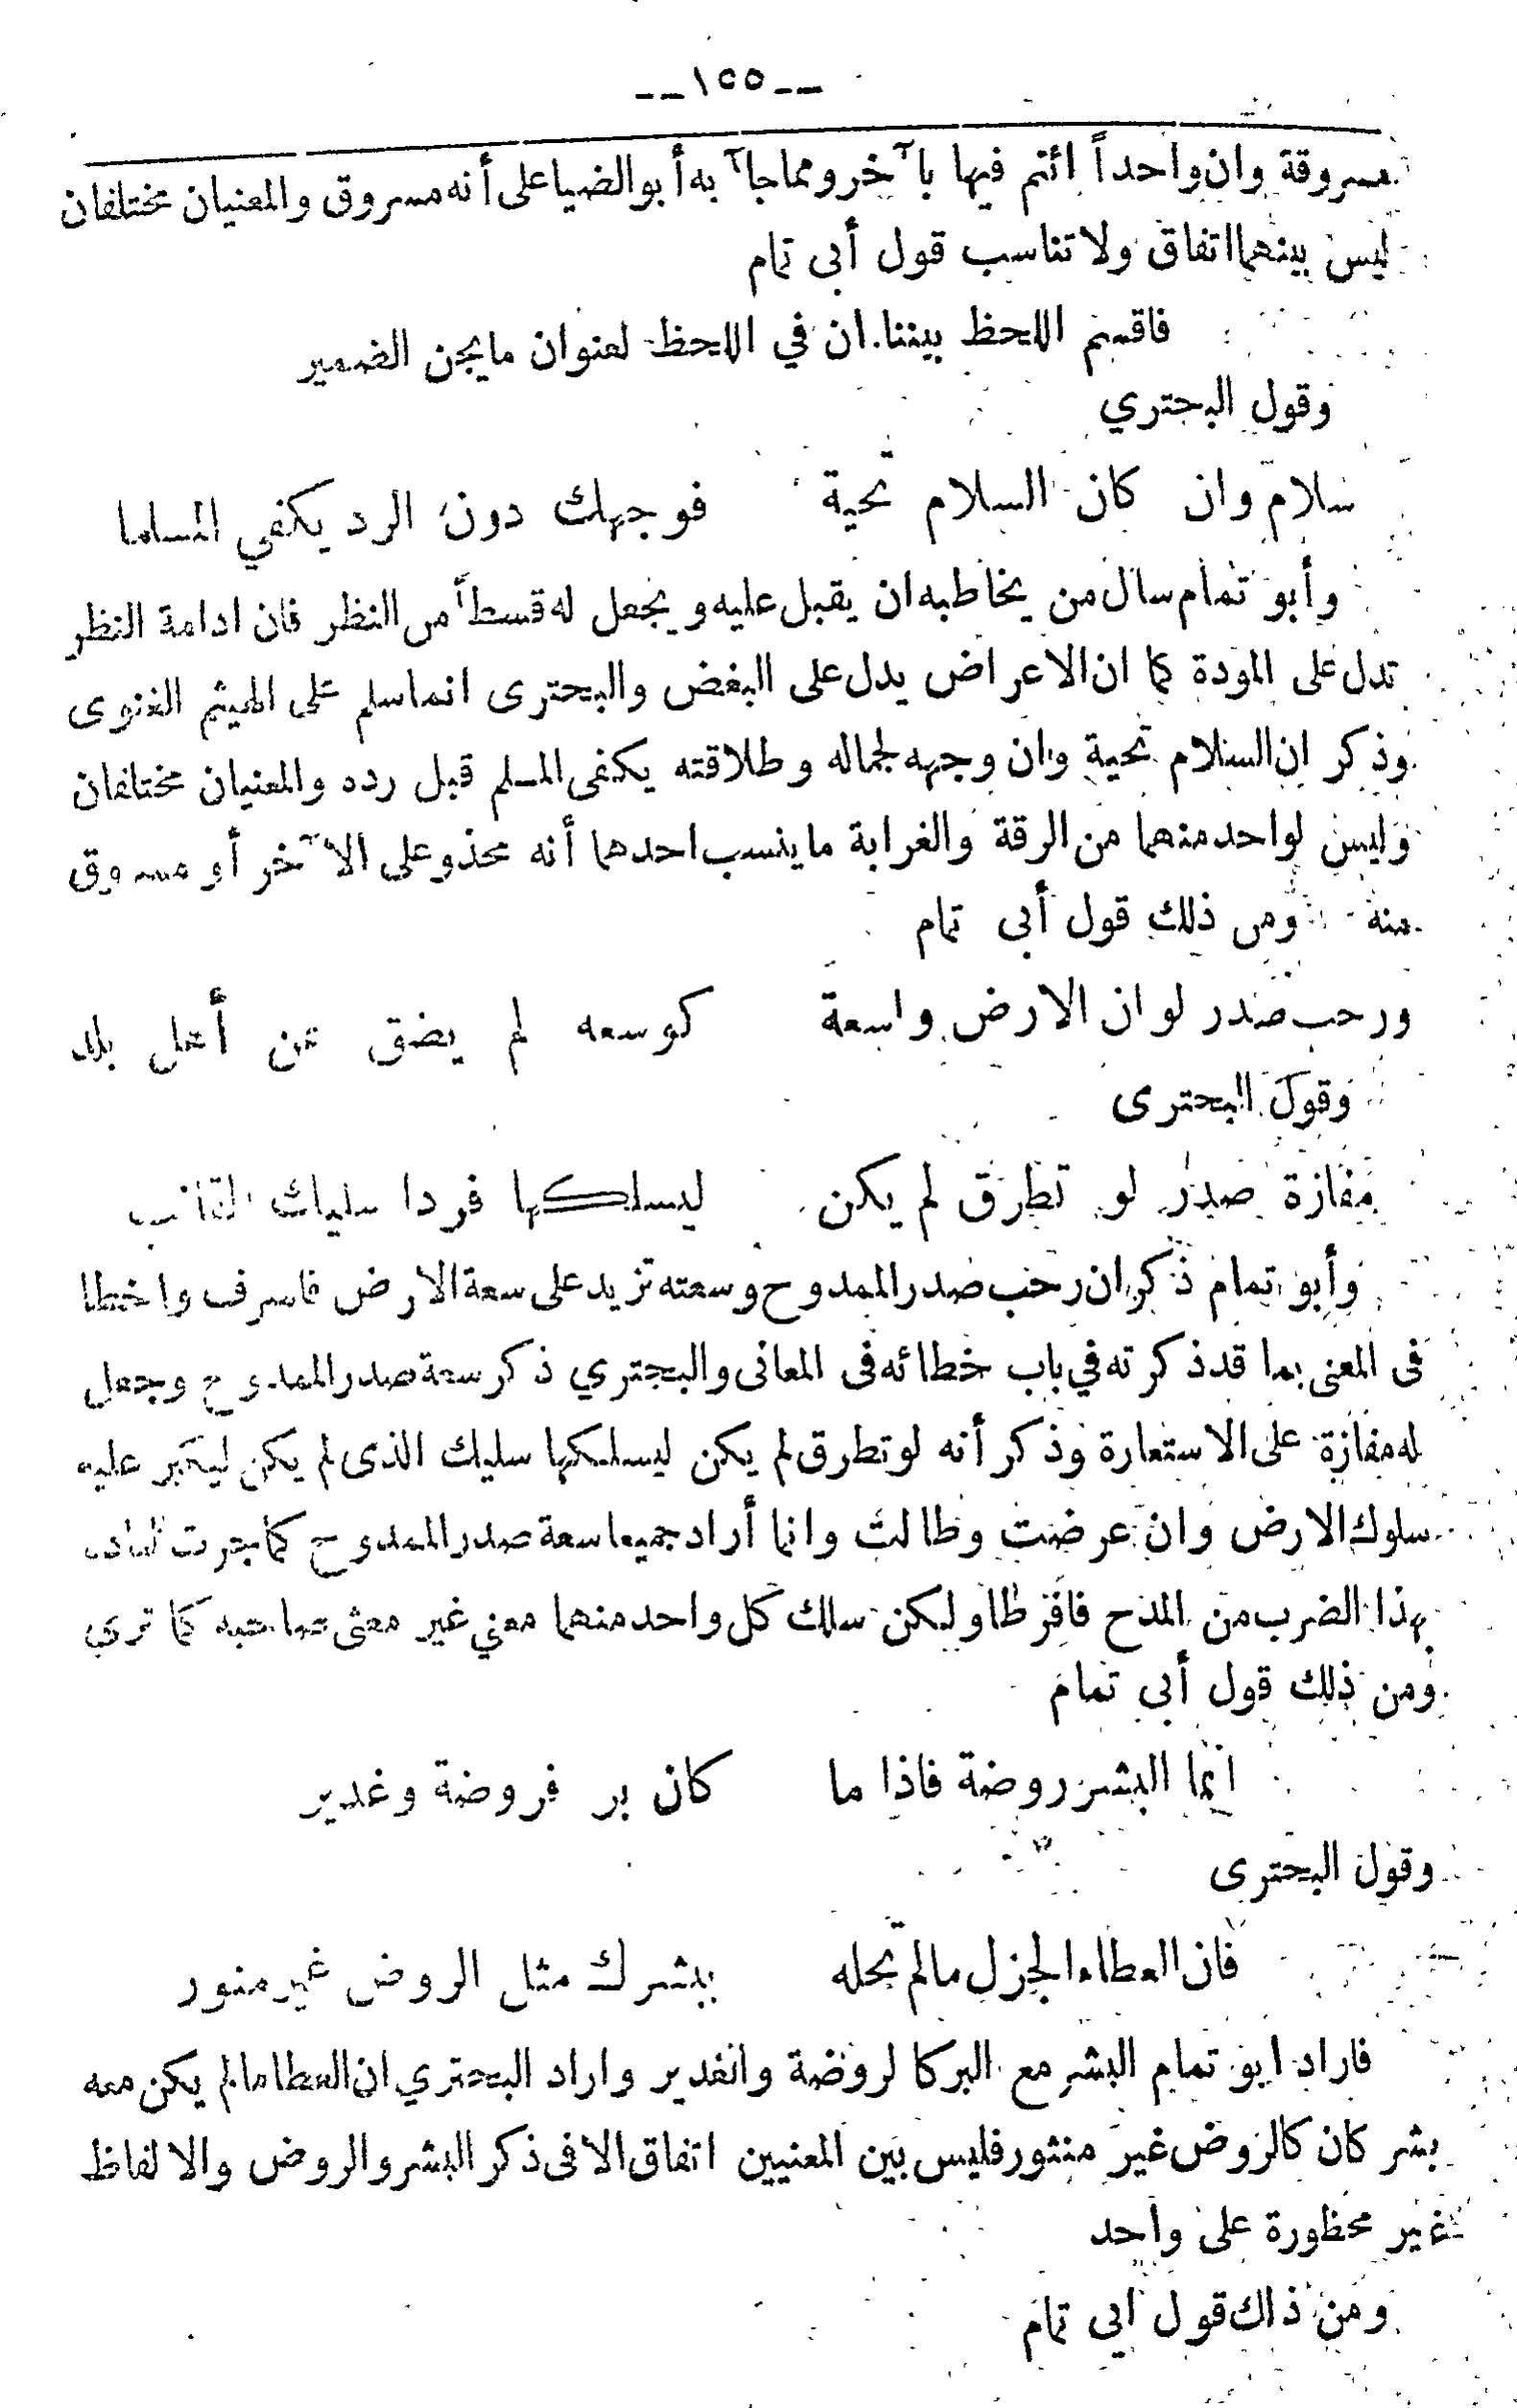 --١٥٥--
مسروقة وان واحداً ائتم فيها بآخر ومما جاء به أبو الضيا على أنه مسروق والمعنيان مختلفان
ليس بينهما اتفاق ولا تناسب قول أبى تمام
فاقسم اللحظ بيننا ان في اللحظ لعنوان ما يجن الضمير
وقول البحتري
سلام وان كان السلام تحية فوجهك دون الرد يكفي المسلما
وأبو تمام سال من يخاطبه ان يقبل عليه ويجعل له قسطاً من النظر فان ادامة النظر
تدل على المودة كما ان الاعراض يدل على البغض والبحترى انما سلم على الهيثم الغنوى
وذكر ان السلام تحية وان وجهه لجماله وطلاقته يكفى المسلم قبل رده والمعنيان مختلفان
وليس لواحد منهما من الرقة والغرابة ما ينسب احدهما أنه محذو على الآخر أو مسروق
منه ومن ذلك قول أبى تمام
ورحب صدر لو ان الارض واسعة كوسعه لم يضق عن أهل بلد
وقول البحترى
مفازة صدر لو تطرق لم يكن ليسلكها فردا سليك المقانب
وأبو تمام ذكر ان رحب صدر الممدوح وسعته تزيد على سعة الارض فاسرف واخطا
فى المعنى بما قد ذكرته في باب خطائه فى المعانى والبحتري ذكر سعة صدر الممدوح وجعل
له مفازة على الاستعارة وذكر أنه لو تطرق لم يكن ليسلكها سليك الذى لم يكن ليكبر عليه
سلوك الارض وان عرضت وطالت وانما أراد جميعا سعة صدر الممدوح كما جرت العادة
بهذا الضرب من المدح فافرطا ولكن سلك كل واحد منهما معني غير معنى صاحبه كما تري
ومن ذلك قول أبى تمام
انما البشر روضة فاذا ما كان بر فروضة وغدير
وقول البحترى
فان العطاء الجزل مالم تحله ببشرك مثل الروض غير منور
فاراد ابو تمام البشر مع البر كالروضة والغدير واراد البحتري ان العطا مالم يكن معه
بشر كان كالروض غير منثور فليس بين المعنيين اتفاق الا فى ذكر البشر والروض والالفاظ
غير محظورة على واحد
ومن ذلك قول ابى تمام